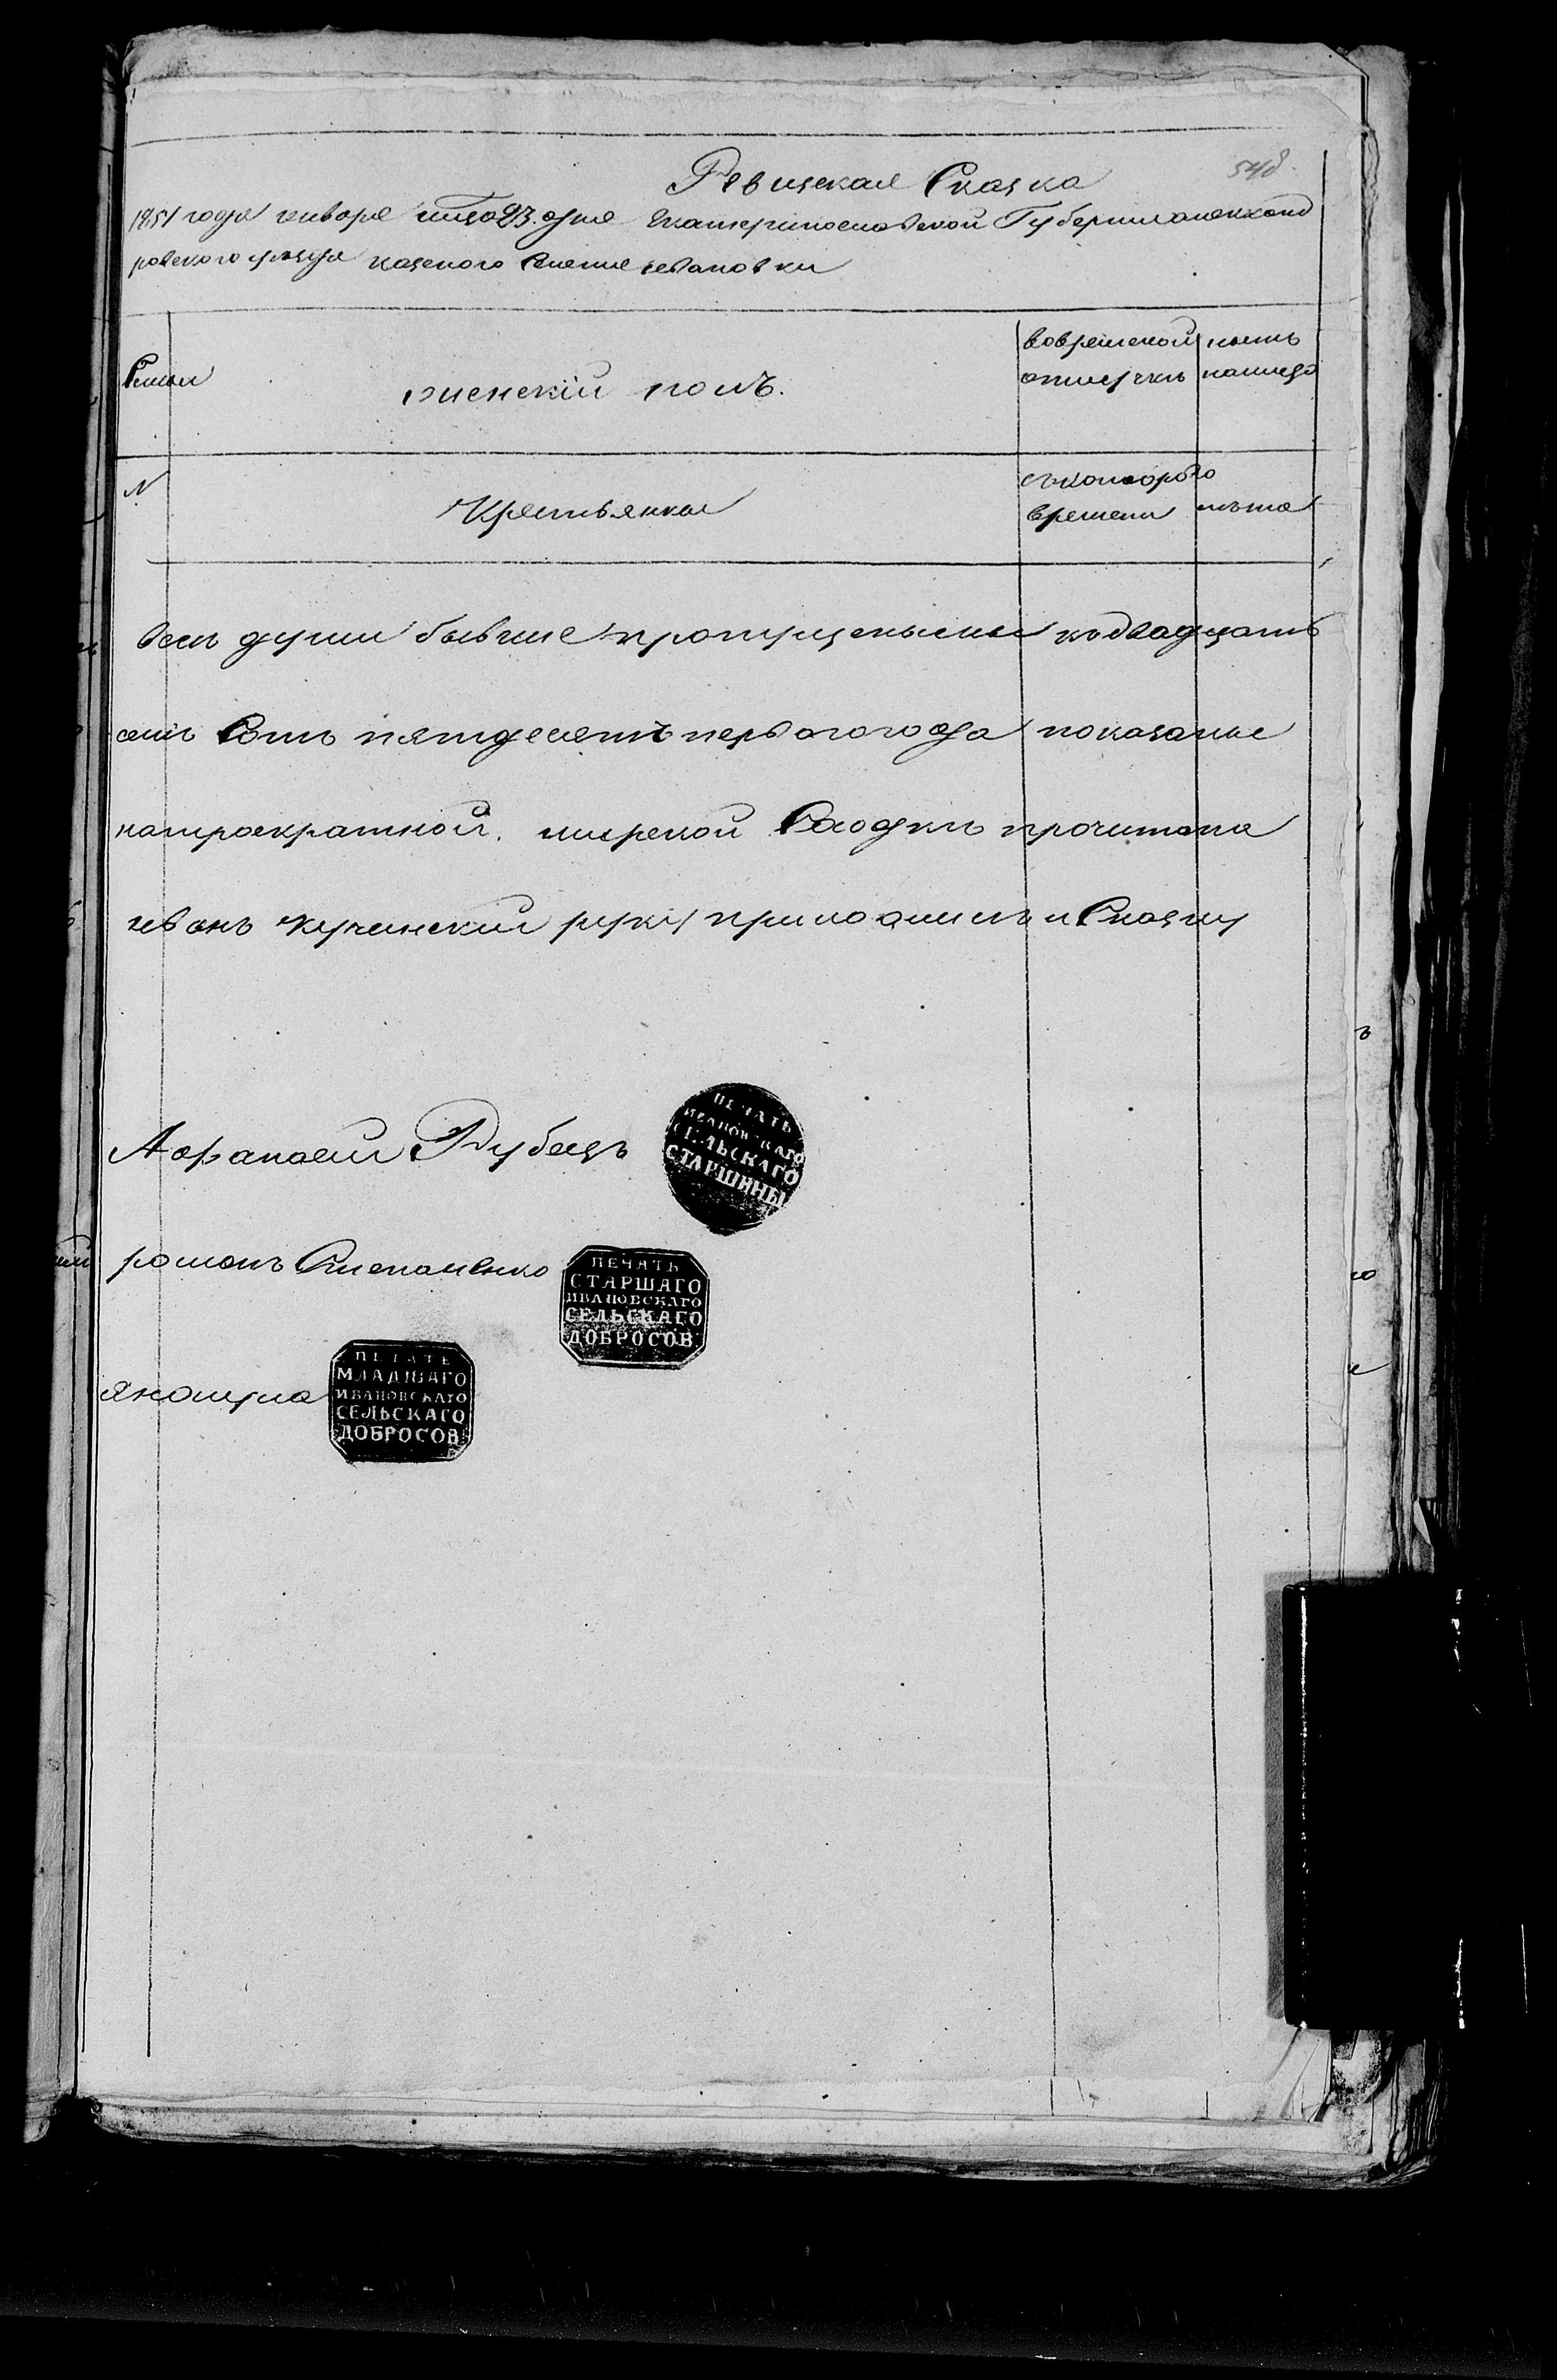 548.
Ревизская Сказка
1851 года генваря 23. дня Екатеринославской Губернии алекканд
ровского уезда казеного Селения ивановки
Семьи
женский полъ.
вовременой
отлучкъ
нынъ
налицо
N
Крестьянки
съкоторого
времени
лъта
всъ души бывшие пропущеными къдвадцать
семъ Сотъ пятдесятъ первагогода показаные
натроекратной. мирской Сходкъ прочитана
иванъ Кученский руку приложилъ и Сказку
Афанасий Рубецъ
ПЕЧАТЬ
ИВАНОВСКАГО
СЕЛЬСКАГО
СТАРШИНЫ
романъ Степаненко
ПЕЧАТЬ
СТАРШАГО
ИВАНОВСКАГО
СЕЛЬСКАГО
ДОБРОСОВ
ПЕЧАТЬ
МЛАДШАГО
ИВАНОВСКАГО
СЕЛЬСКАГО
ДОБРОСОВ